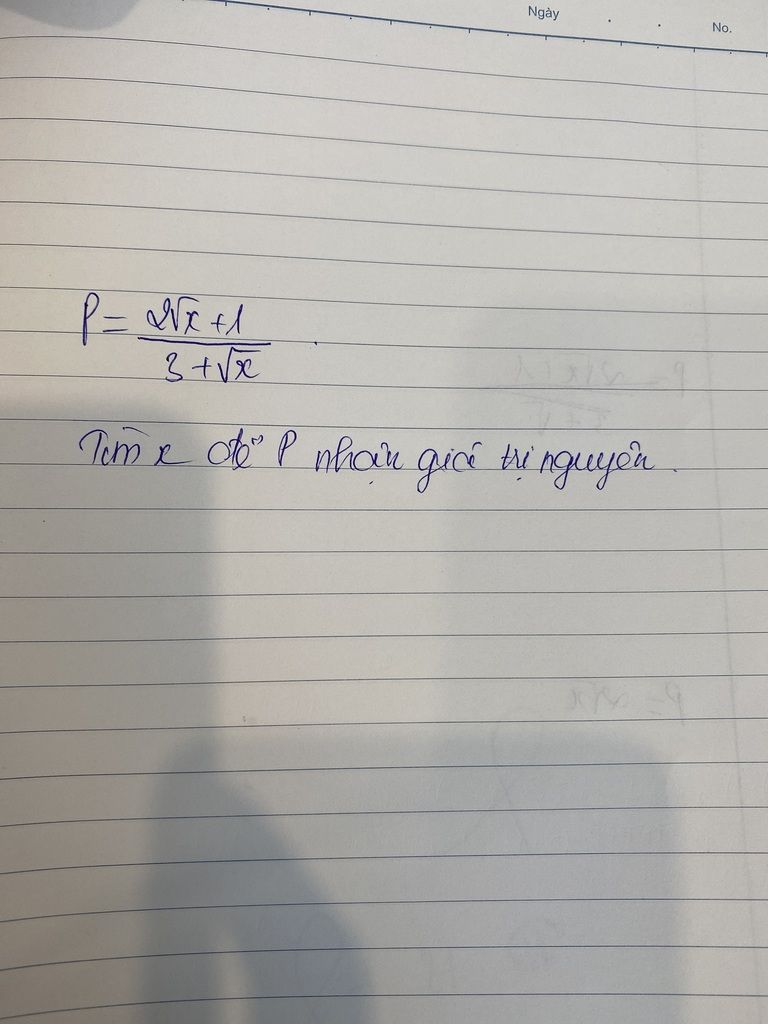 Ngày . .
No.
P = \frac{2\sqrt{x} + 1}{3 + \sqrt{x}} .
Tìm x để P nhận giá trị nguyên .